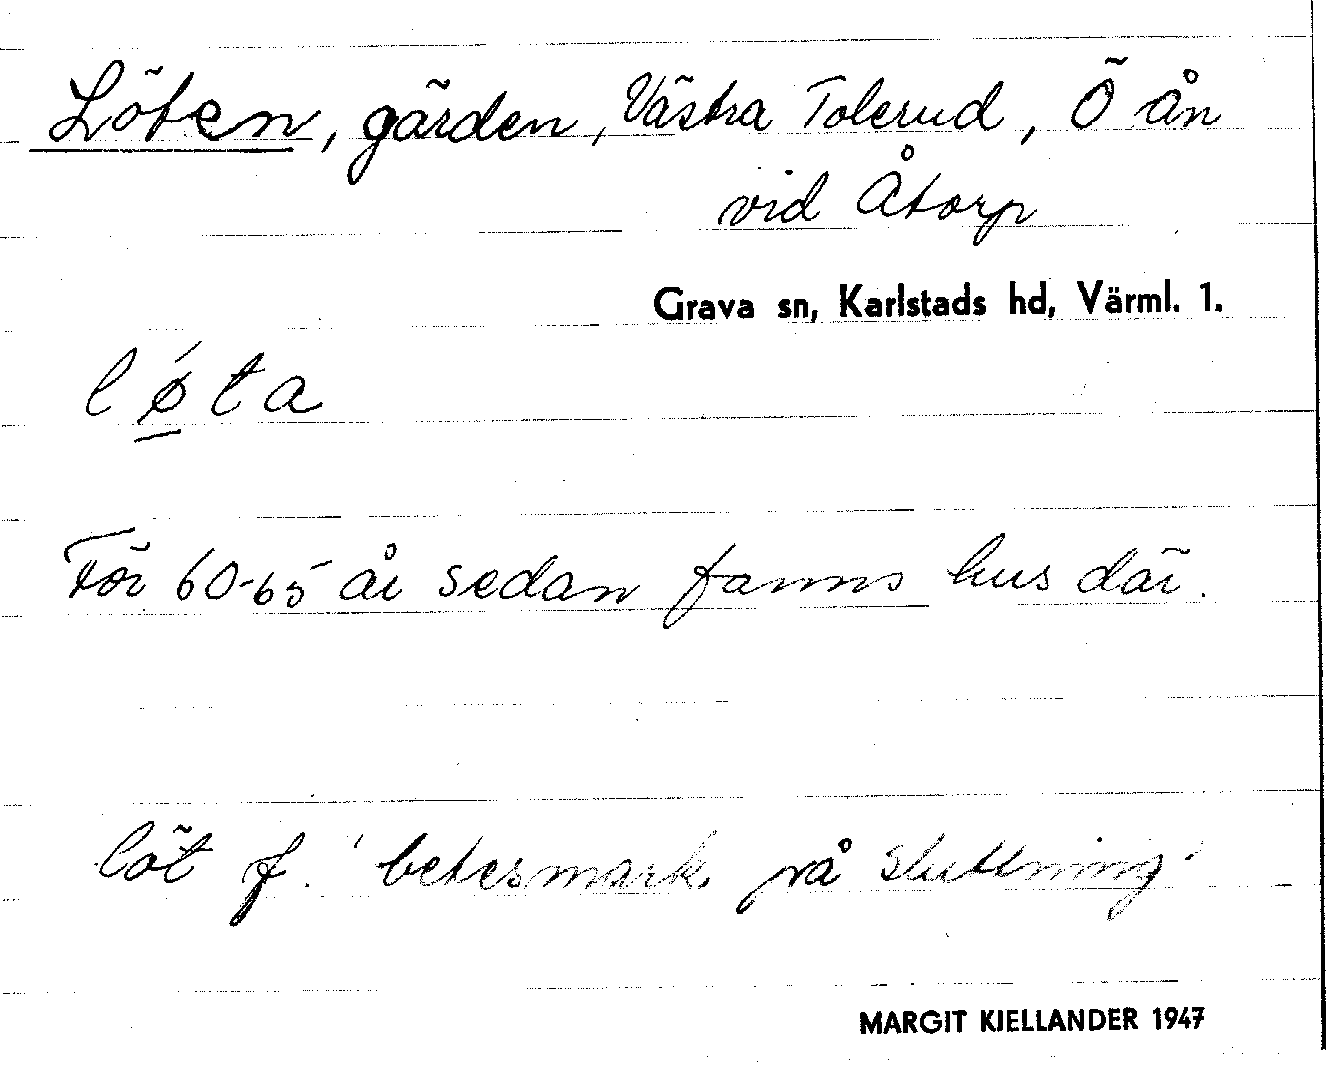 Löten, gärden, Västra Tolerud, Ö ån
vid Åtorp
Grava sn, Karlstads hd, Värml. 1.
lǿ̱ta
För 60-65 år sedan fanns hus där.
löt f. 'betesmark på sluttning'
MARGIT KJELLANDER 1947